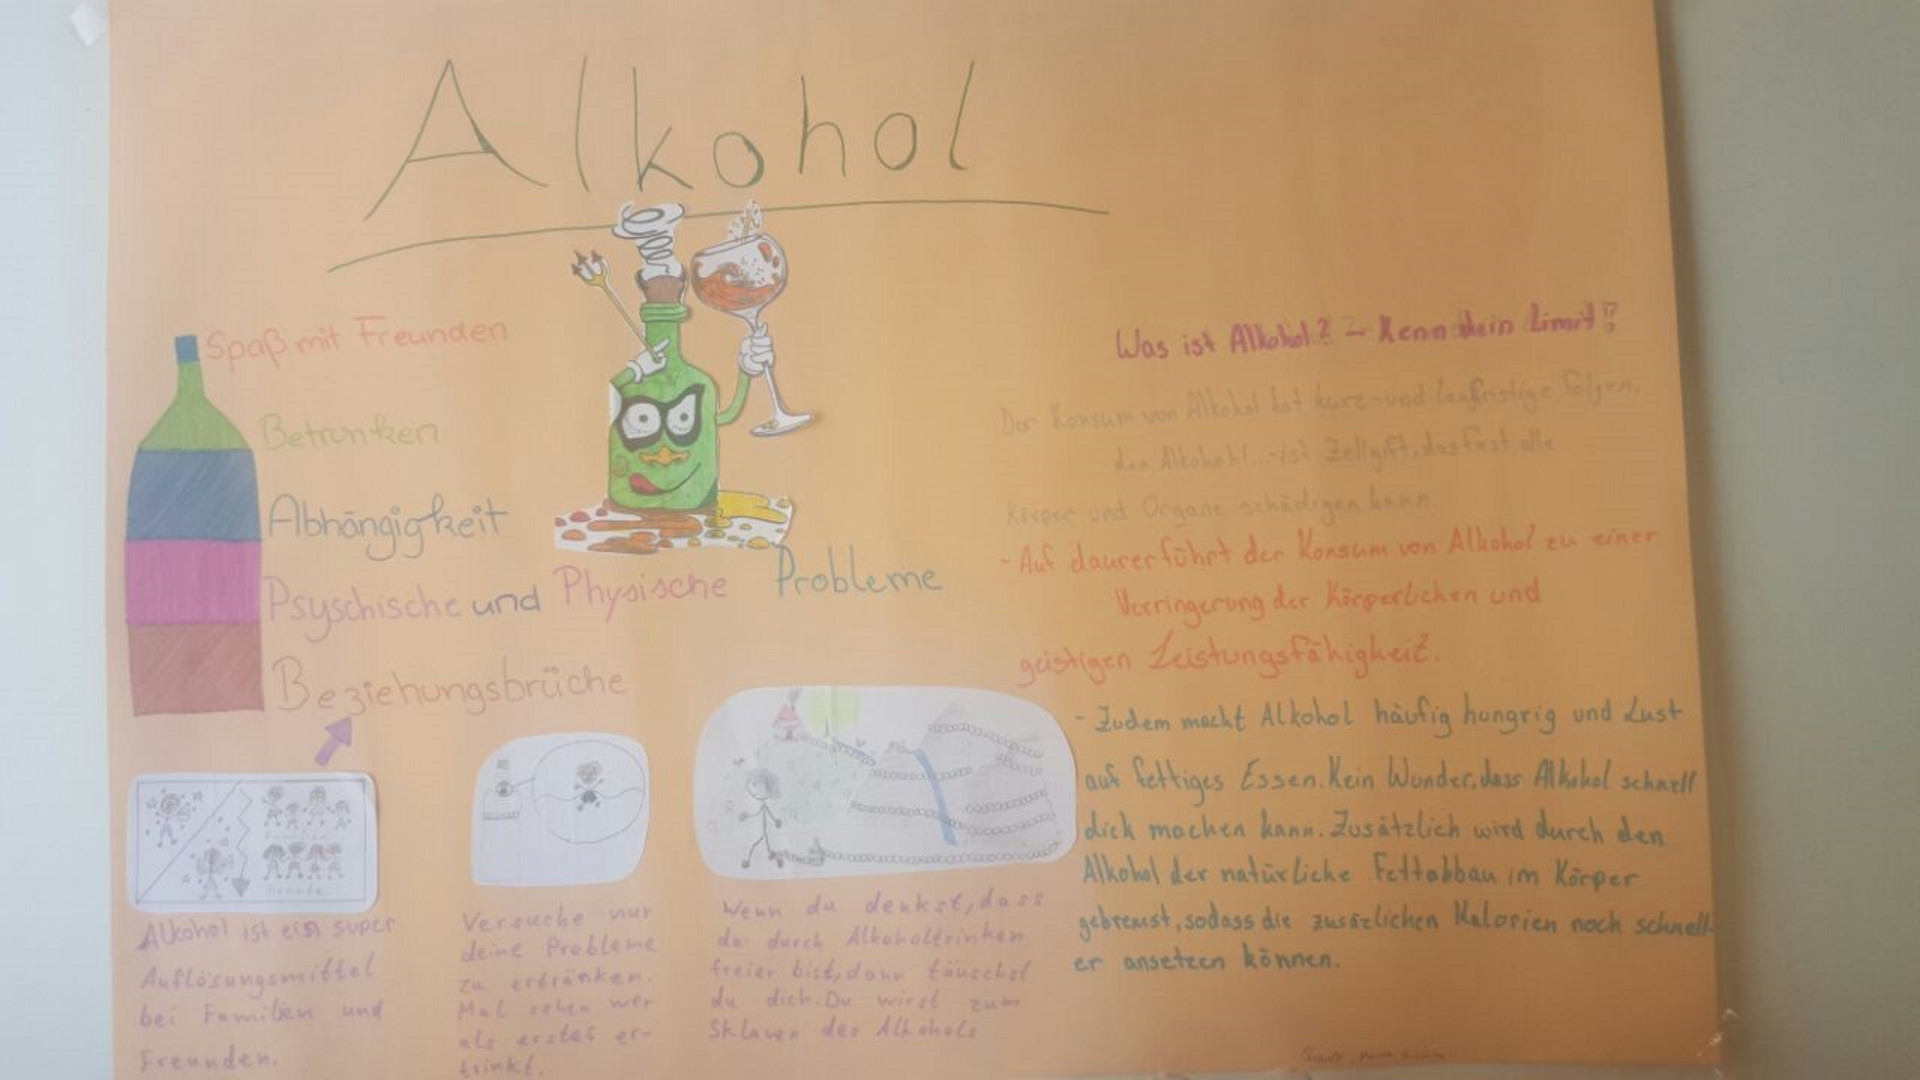 Alkohol
Spaß mit Freunden
Betrunken
Abhängigkeit
Psyschische und Physische Probleme
Beziehungsbrüche
Alkohol ist ein super
Auflösungsmittel
bei Familien und
Freunden.
Versuche nur
deine Probleme
zu ertränken.
Mal sehen wer
als erstes er-
trinkt.
Wenn du denkst, dass
du durch Alkoholtrinken
freier bist, dann täuschst
du dich. Du wirst zum
Sklaven des Alkohols
Was ist Alkohol? – Kenn dein Limit!?
Der Konsum von Alkohol hat kurz- und langfristige Folgen,
den Alkohohl...-ist Zellgift, das fast alle
Körper und Organe schädigen kann.
- Auf daurer führt der Konsum von Alkohol zu einer
Verringerung der Körperlichen und
geistigen Leistungsfähigkeit.
- Zudem macht Alkohol häufig hungrig und Lust
auf fettiges Essen. Kein Wunder, dass Alkohol schnell
dick machen kann. Zusätzlich wird durch den
Alkohol der natürliche Fettabbau im Körper
gebremst, sodass die zusäzlichen Kalorien noch schnell-
er ansetzen können.